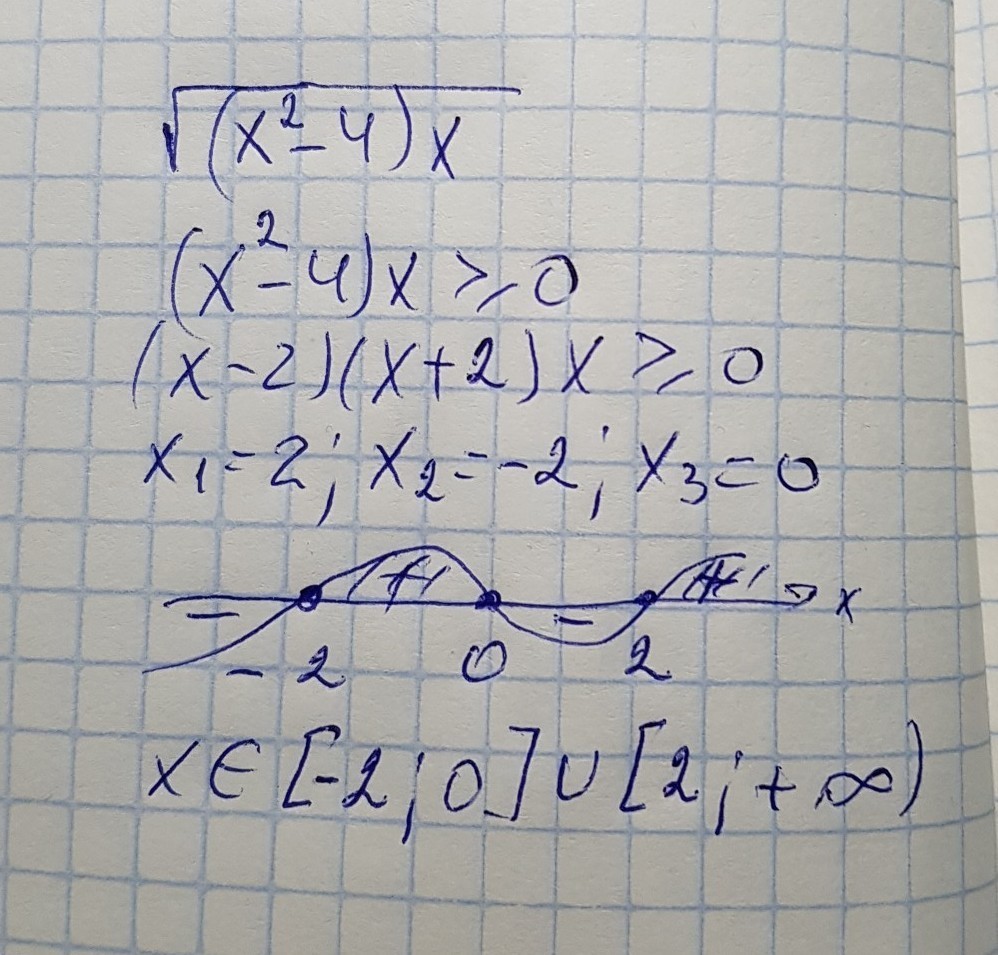 √(x²-4)x
(x²-4)x ≥ 0
(x-2)(x+2)x ≥ 0
x₁=2; x₂=-2; x₃=0
- + - + x
-2 0 2
x∈[-2;0]∪[2;+∞)